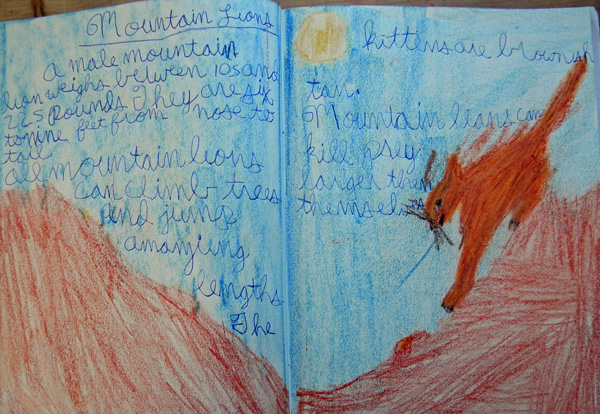 Mountain Lions
a male mountain
lion weighs between 105 and
225 Pounds They are six
to nine feet from nose to
tail
all mountain lions
can climb trees
and jump
amanzing
lengths
The
kittens are brownish
tan.
Mountain lions can
kill prey
larger then
themselvs